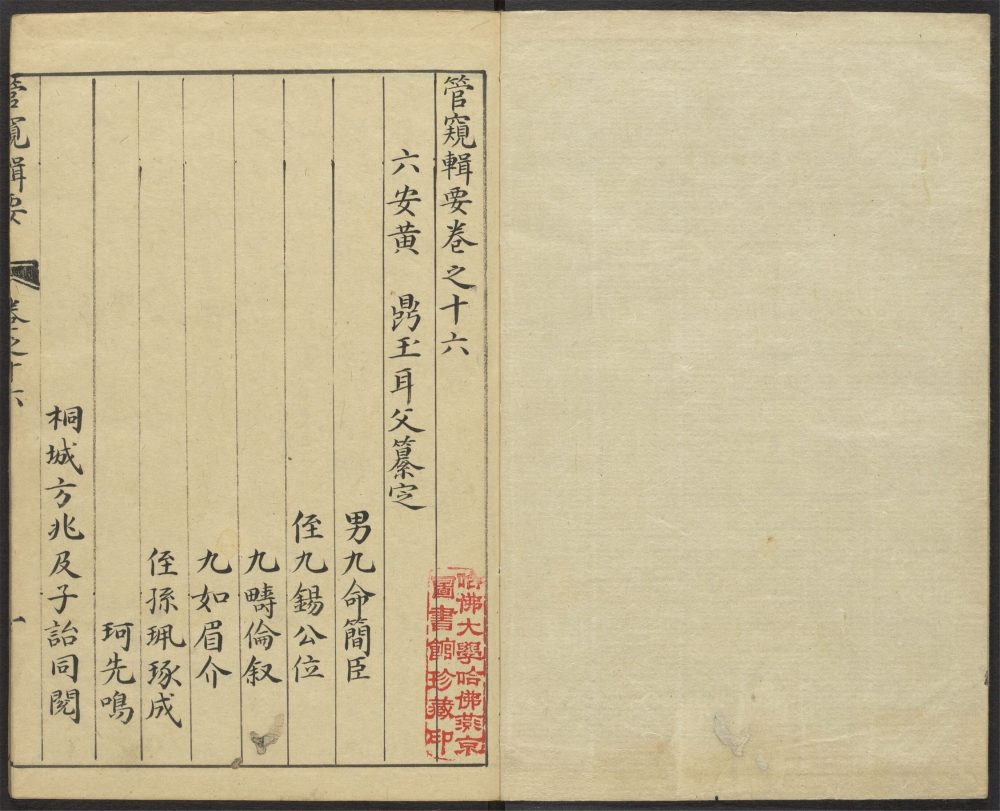 管窺輯要卷之十六
六安黃 鼎玉耳父纂定
男九命簡臣
侄九錫公位
九疇倫叙
九如眉介
侄孫珮琢成
珂先鳴
桐城方兆及子詒同閱
管窺輯要 卷之十六 一
哈佛大學哈佛燕京
圖書館珍藏印